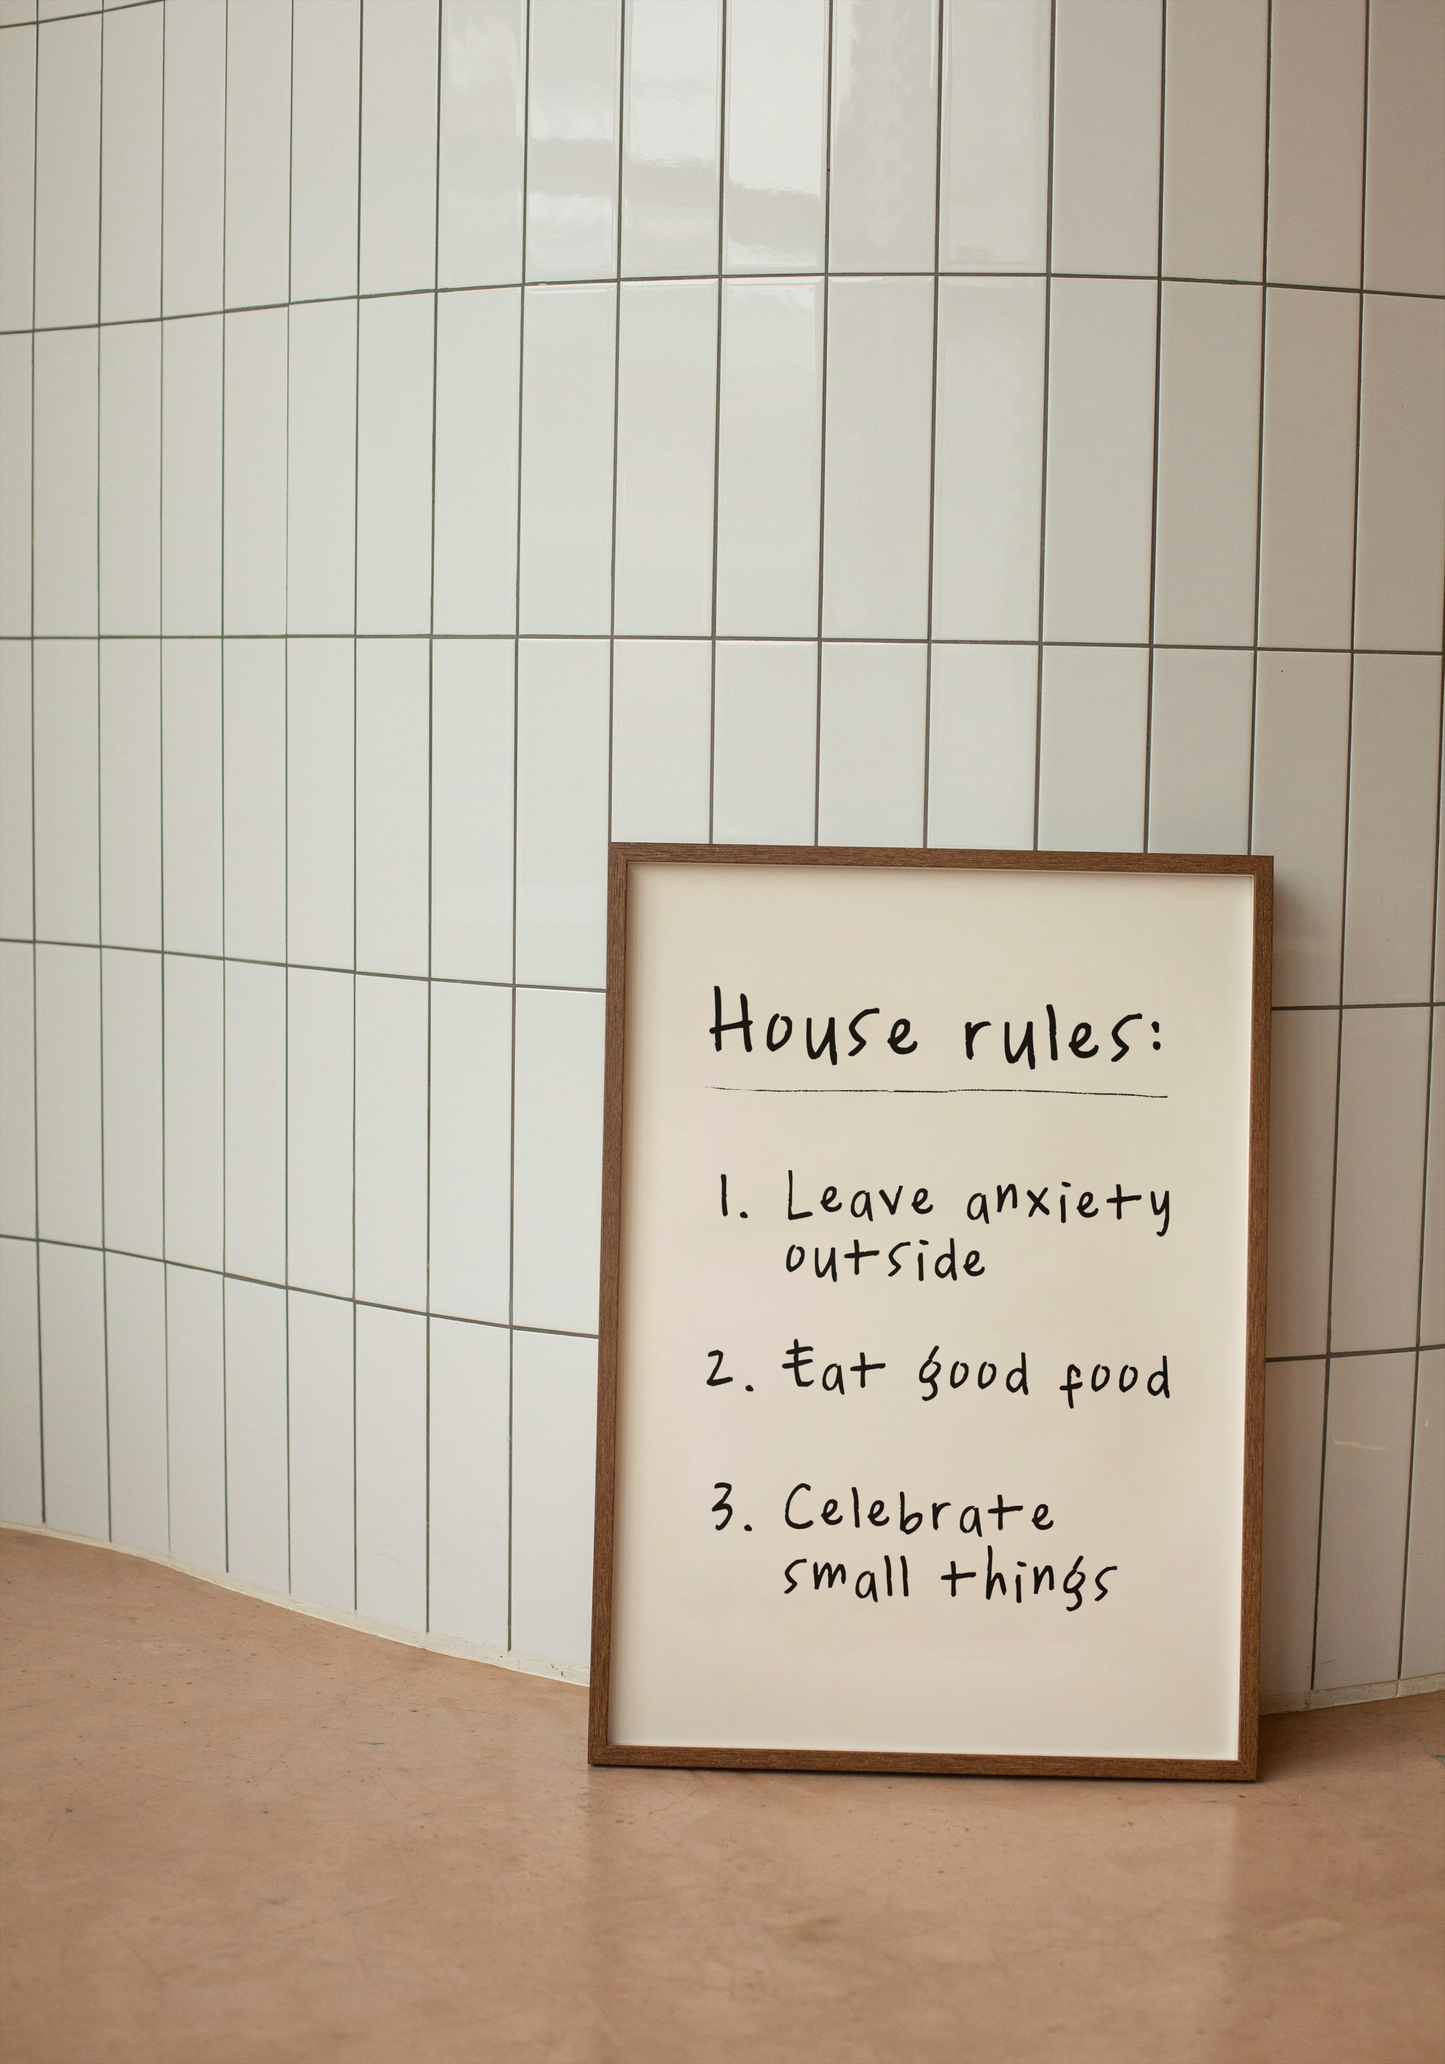 House rules:
1. Leave anxiety
outside
2. Eat good food
3. Celebrate
small things